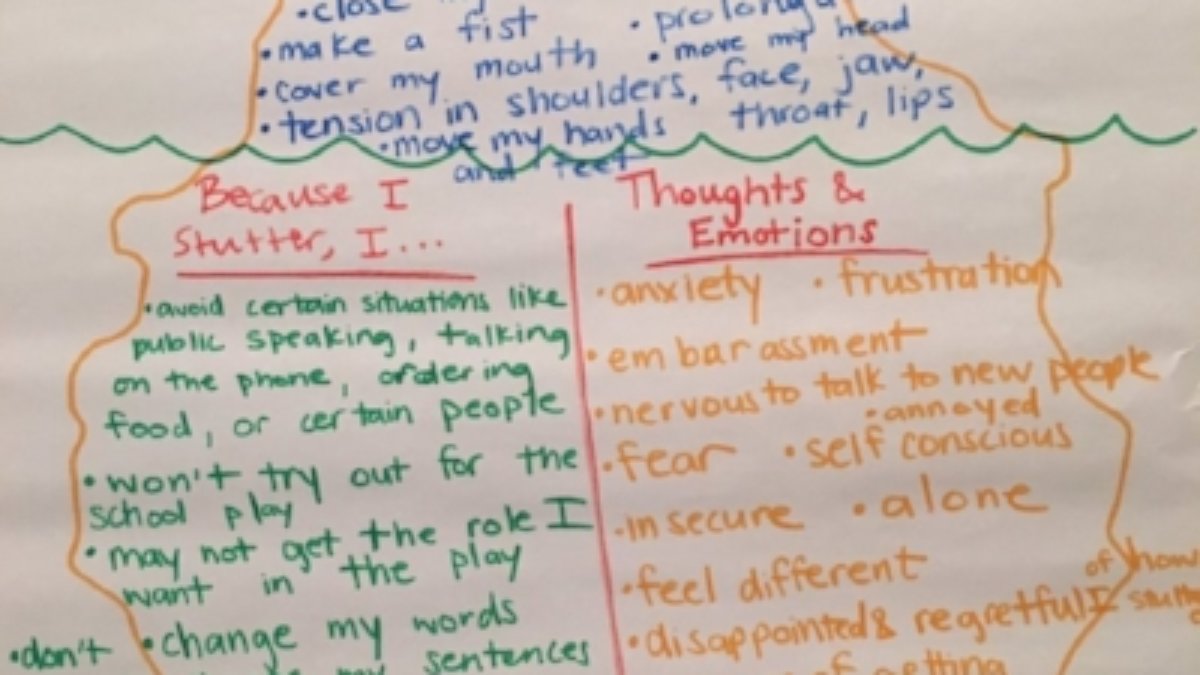 • close
• make a fist
• prolong
• cover my mouth
• move my head
• tension in shoulders, face, jaw,
throat, lips
• move my hands
and feet
Because I
Stutter, I...
• avoid certain situations like
public speaking, talking
on the phone, ordering
food, or certain people
• won't try out for the
school play
• may not get the role I
want in the play
• change my words
• don't
my sentences
Thoughts &
Emotions
• anxiety • frustration
• embarassment
• nervous to talk to new people
• annoyed
• fear • self conscious
• insecure • alone
• feel different
• disappointed & regretful of how
I stutter
of getting